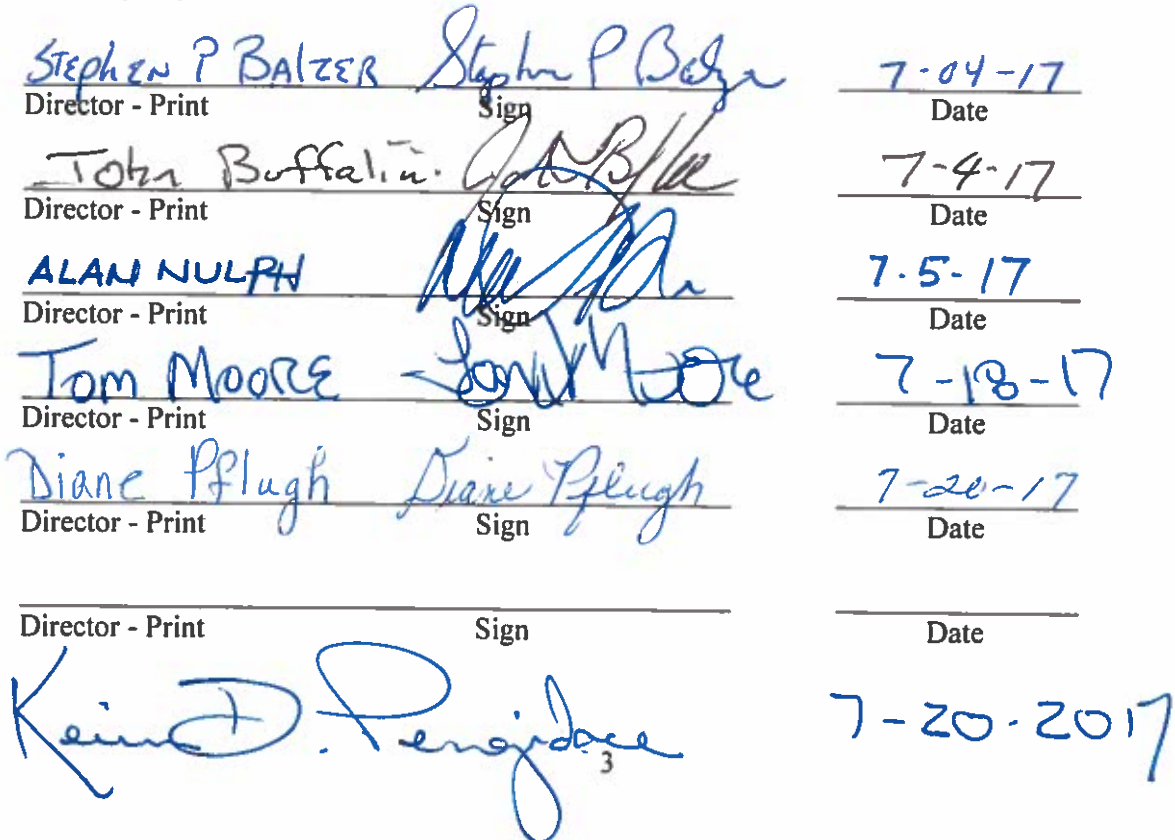 STEPHEN P BALZER Stephen P Balzer 7-04-17
Director - Print Sign Date
John Buffalin. 7-4-17
Director - Print Sign Date
ALAN NULPH 7.5-17
Director - Print Sign Date
TOM MOORE Tom Moore 7-18-17
Director - Print Sign Date
Diane Pflugh Diane Pflugh 7-20-17
Director - Print Sign Date
Director - Print Sign Date
D. 7-20-2017
3